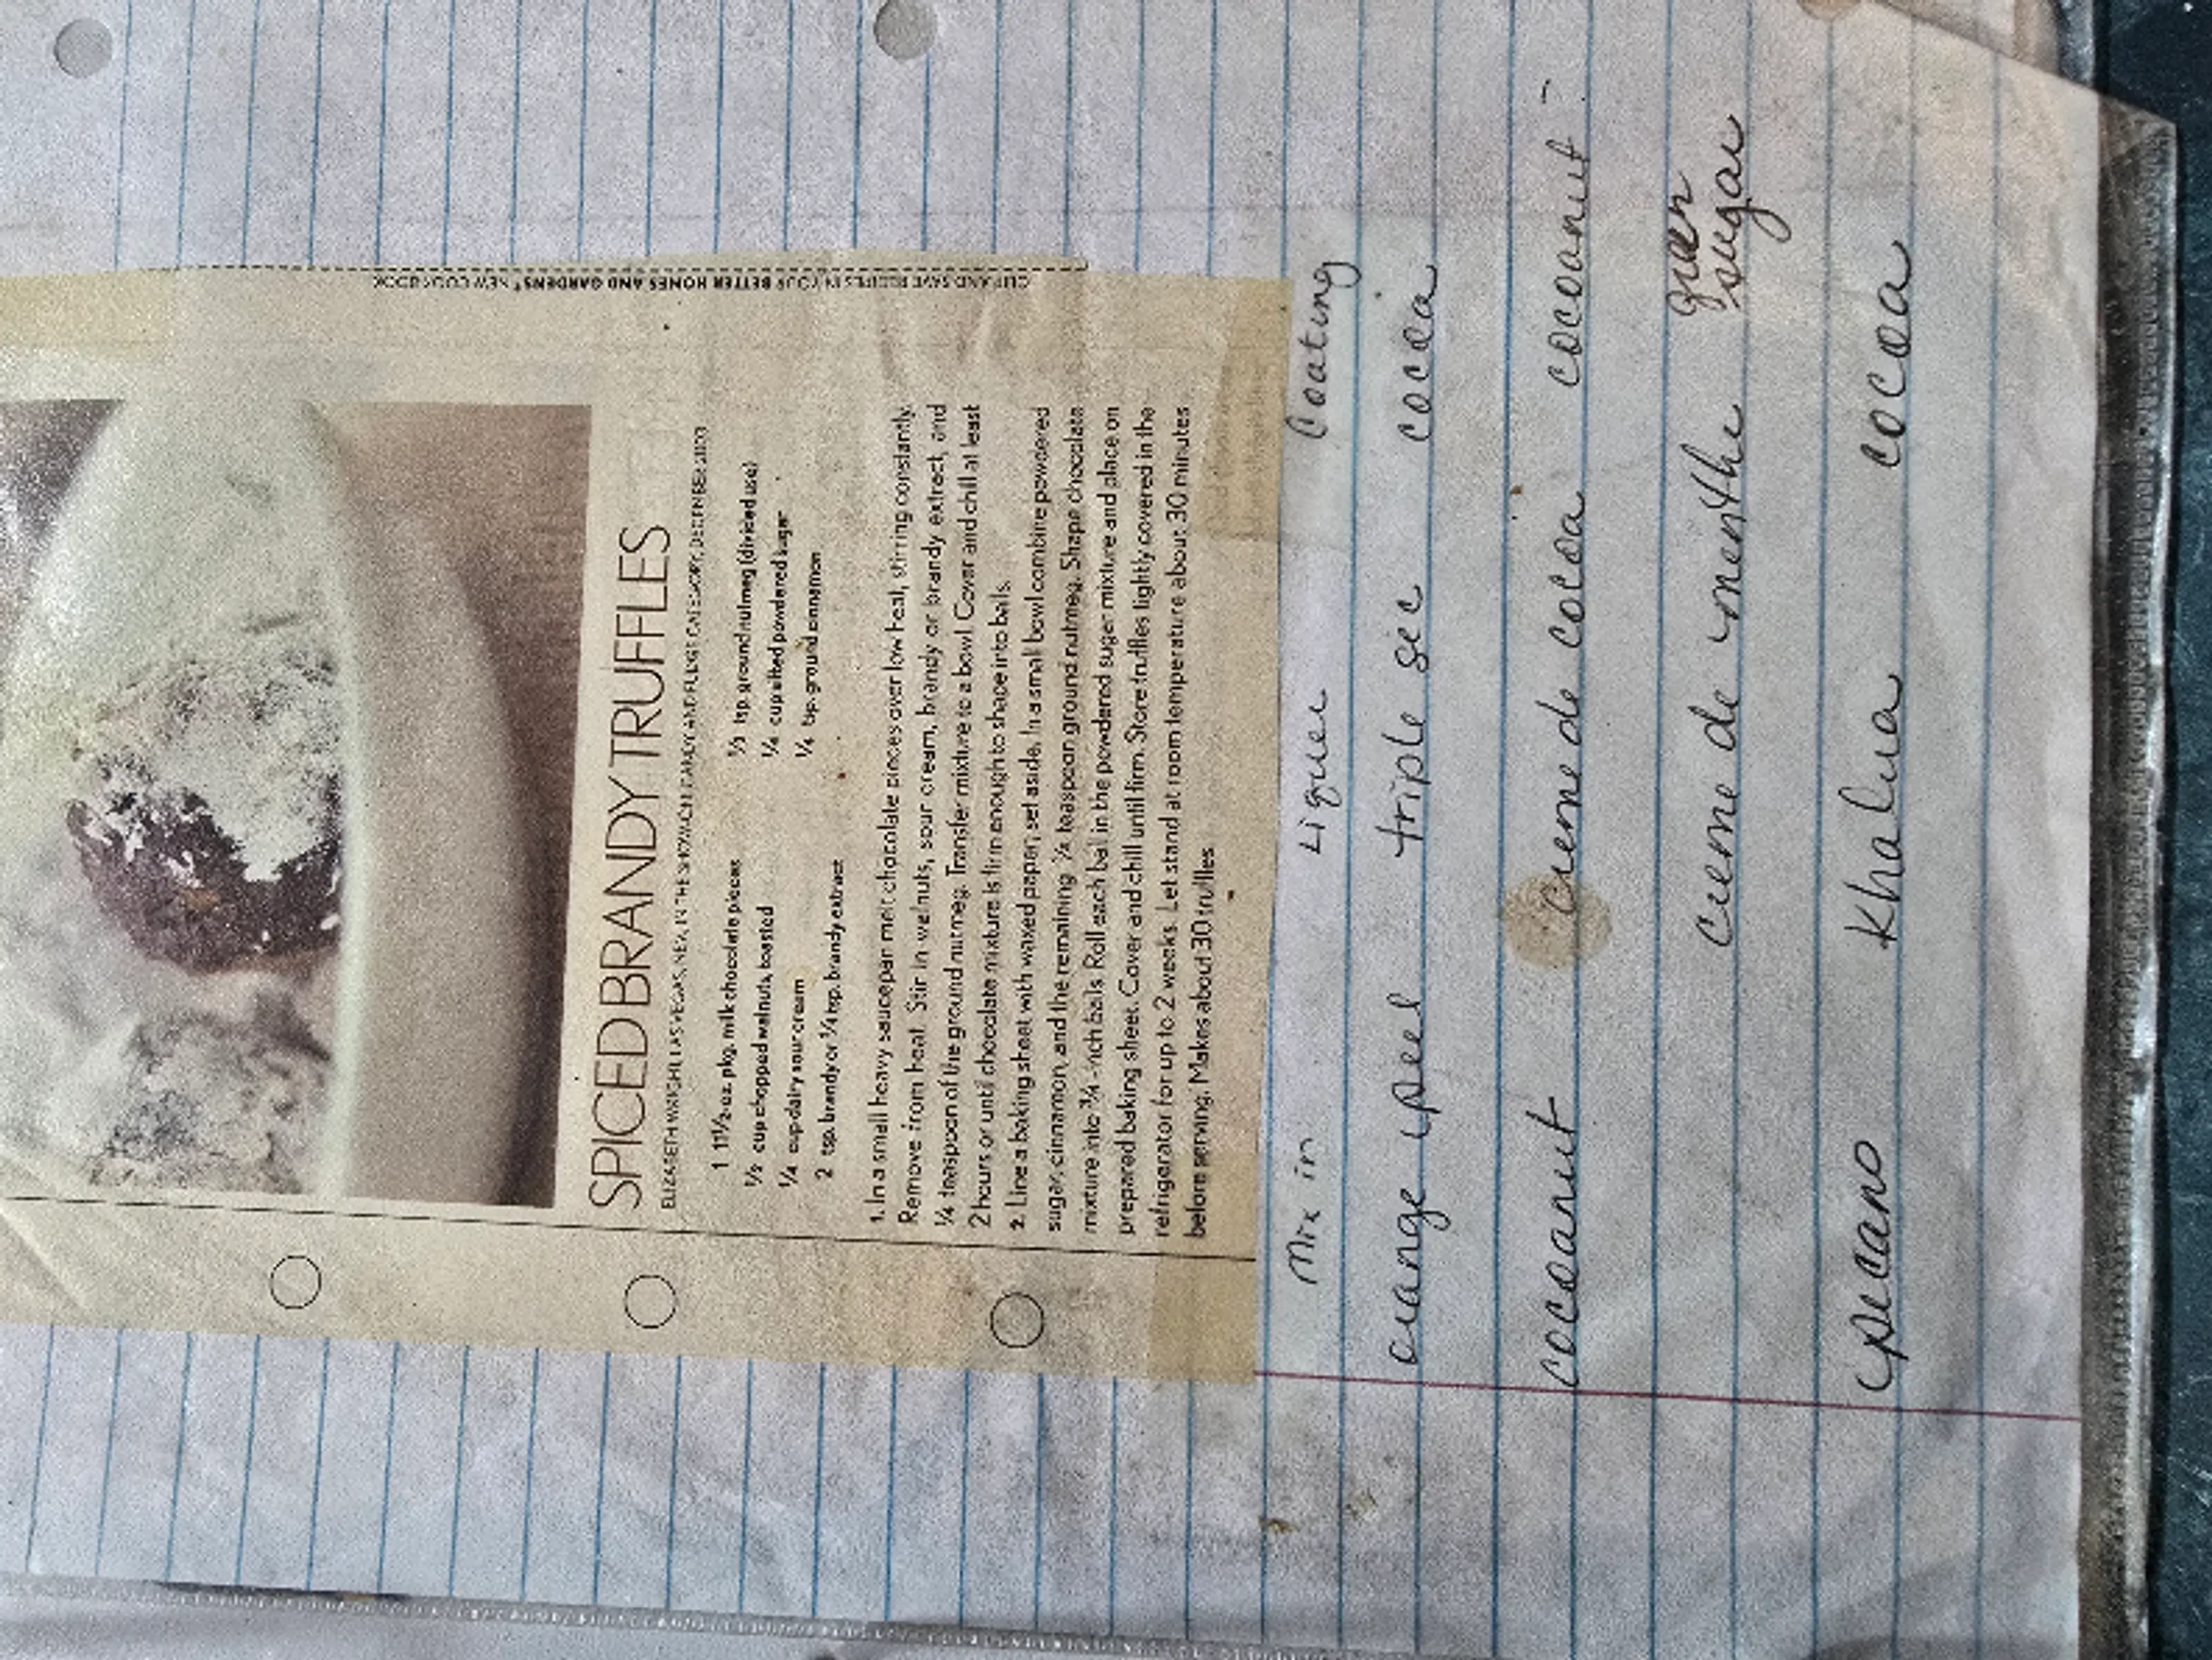 CLIP AND SAVE RECIPES IN YOUR BETTER HOMES AND GARDENS® NEW COOK BOOK
SPICED BRANDY TRUFFLES
ELIZABETH WRIGHT, LAS VEGAS, NEV., IN THE SHOW-OFF CANDY AND FUDGE CATEGORY, DECEMBER 2003
1 11½-oz. pkg. milk chocolate pieces
⅓ cup chopped walnuts, toasted
¼ cup dairy sour cream
2 tsp. brandy or ¼ tsp. brandy extract
½ tsp. ground nutmeg (divided use)
¼ cup sifted powdered sugar
¼ tsp. ground cinnamon
1. In a small heavy saucepan melt chocolate pieces over low heat, stirring constantly.
Remove from heat. Stir in walnuts, sour cream, brandy or brandy extract, and
¼ teaspoon of the ground nutmeg. Transfer mixture to a bowl. Cover and chill at least
2 hours or until chocolate mixture is firm enough to shape into balls.
2. Line a baking sheet with waxed paper; set aside. In a small bowl combine powdered
sugar, cinnamon, and the remaining ¼ teaspoon ground nutmeg. Shape chocolate
mixture into ¾-inch balls. Roll each ball in the powdered sugar mixture and place on
prepared baking sheet. Cover and chill until firm. Store truffles tightly covered in the
refrigerator for up to 2 weeks. Let stand at room temperature about 30 minutes
before serving. Makes about 30 truffles.
Mix in Liquer Coating
orange peel triple sec cocoa
cocoanut creme de cocoa cocoanut
creme de menthe green sugar
pecans Khalua cocoa